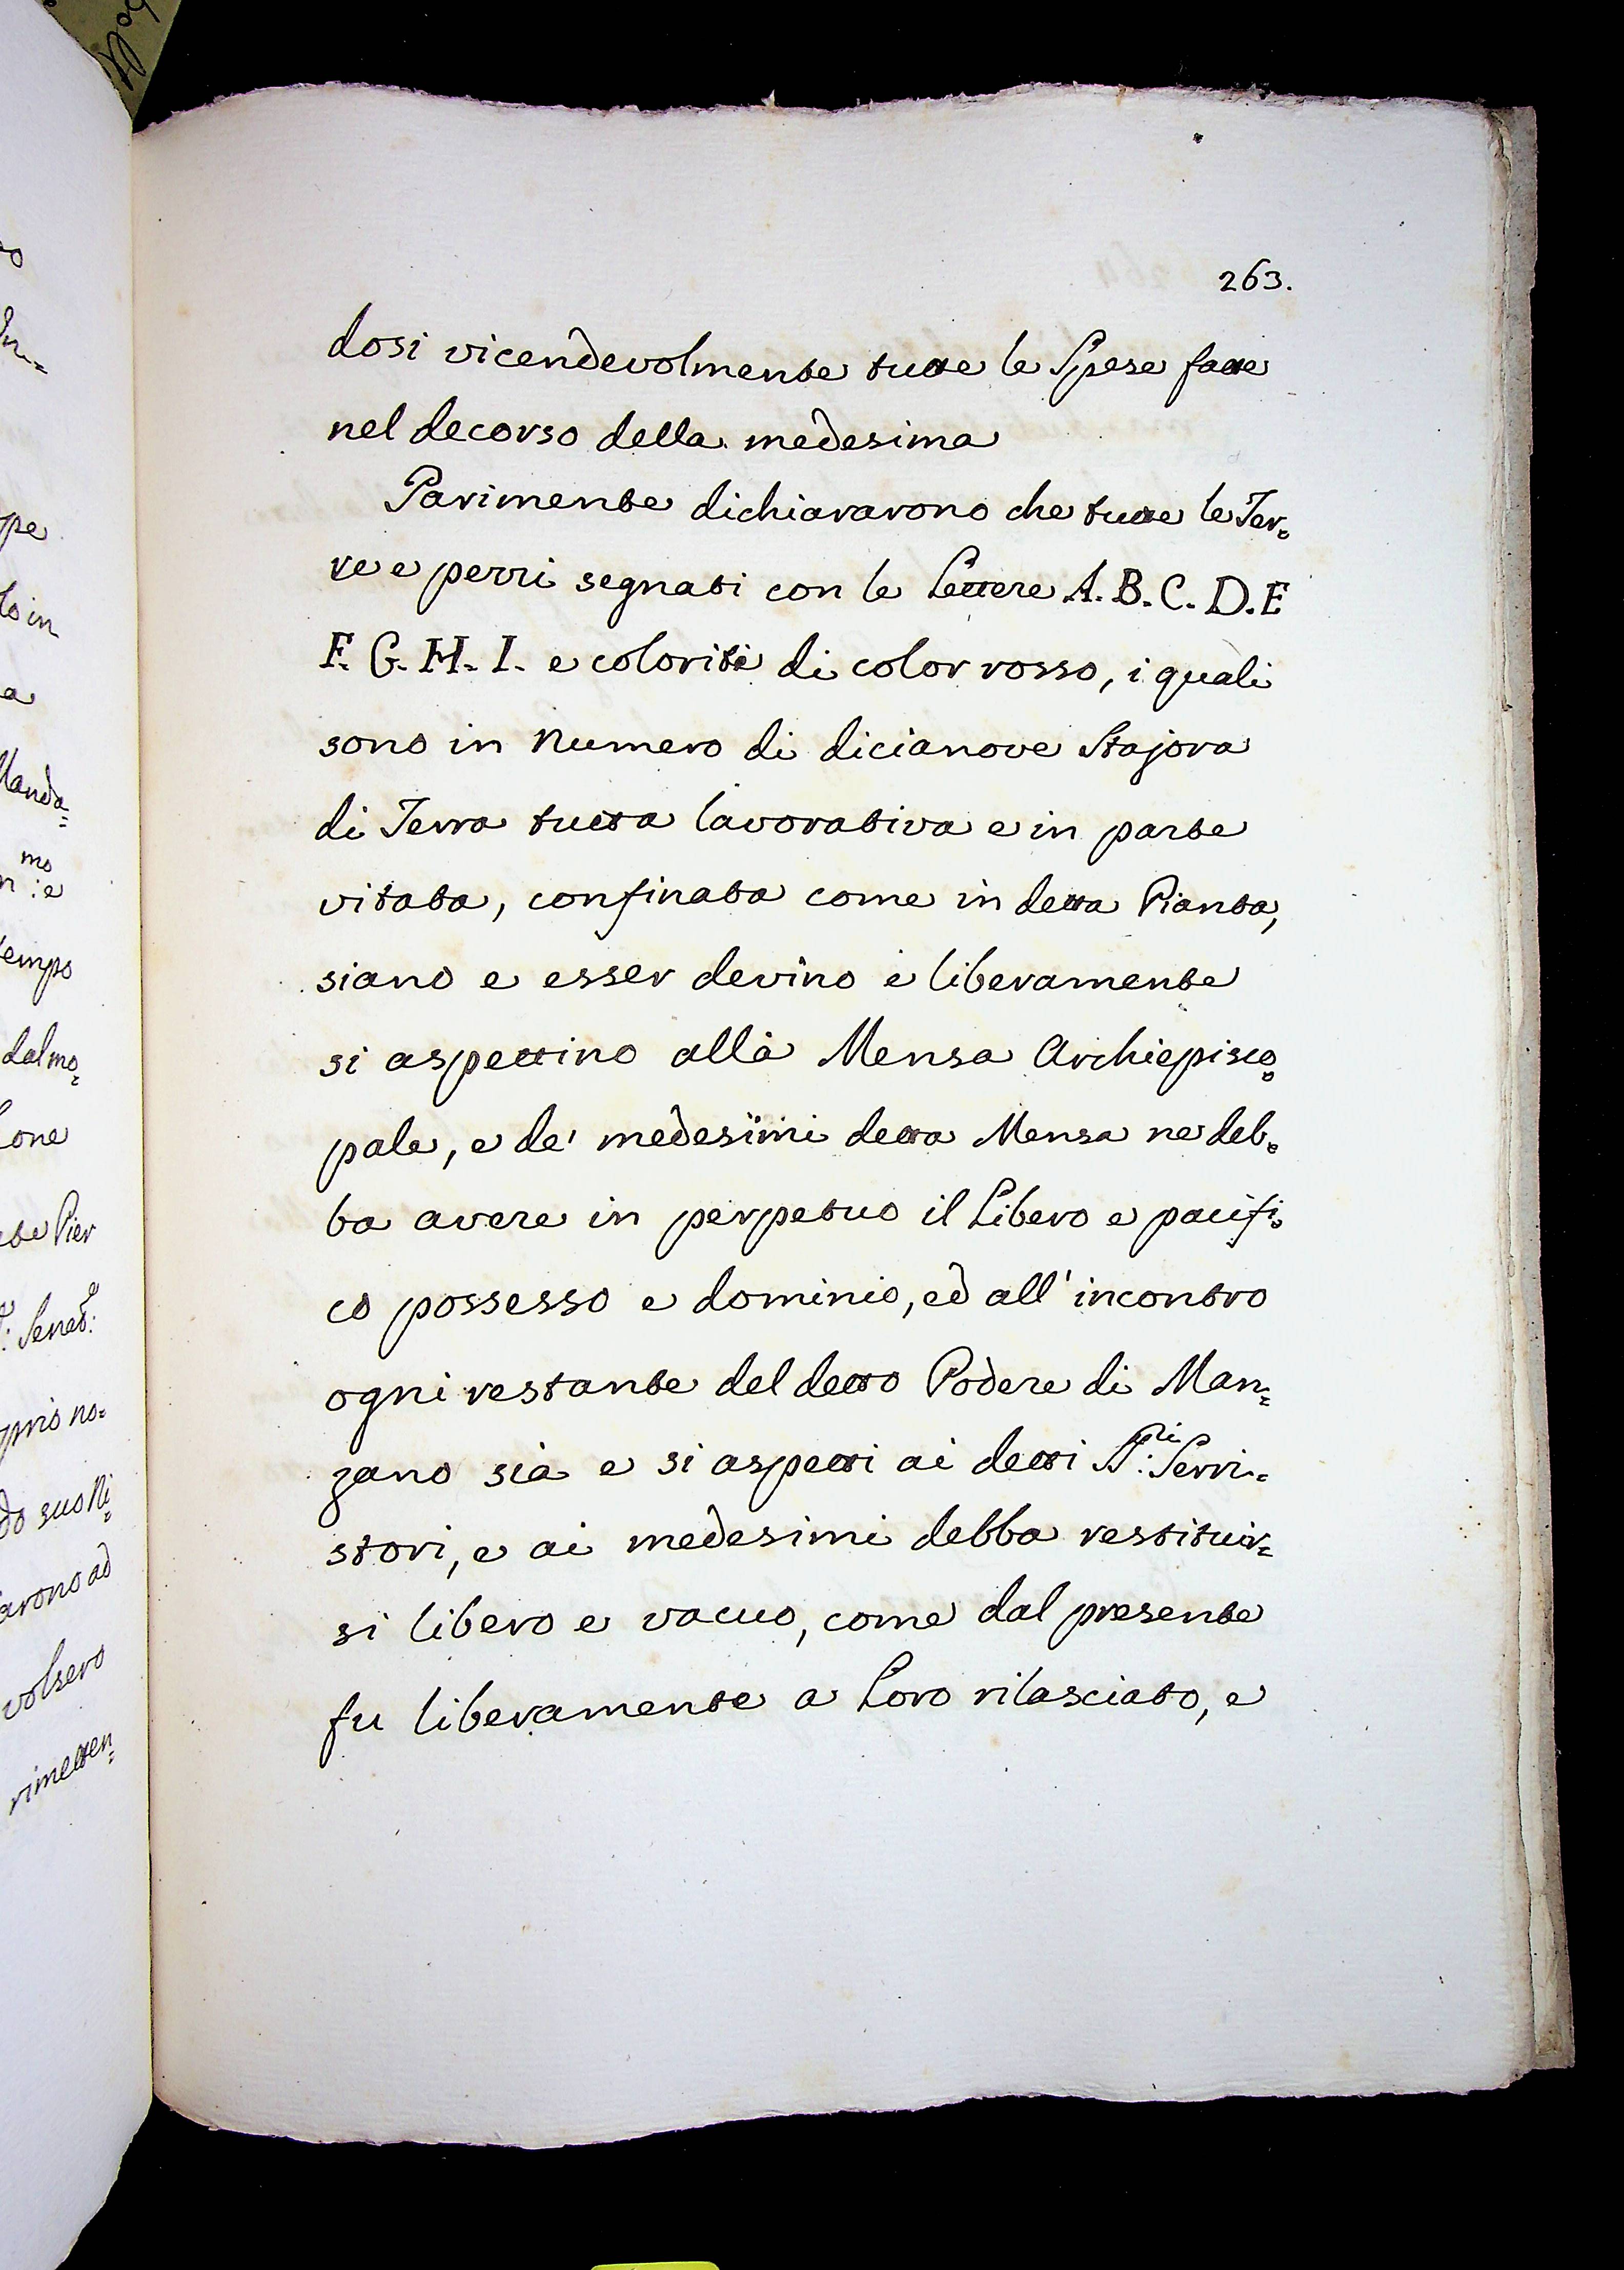 263.
dosi vicendevolmente tutte le Spese fatte
nel decorso della medesima
Parimente dichiararono che tutte le Ter=
re e pezzi segnati con le Lettere A. B. C. D. E
F. G. H. I. e coloriti di color rosso, i quali
sono in numero di dicianove Stajora
di Terra tutta lavorativa e in parte
vitata, confinata come in detta Pianta,
siano e esser devino e liberamente
si aspettino alla Mensa Archiepisco=
pale, e de' medesimi detta Mensa ne deb=
ba avere in perpetuo il Libero e pacifi=
co possesso e dominio, ed all' incontro
ogni restante del detto Podere di Man=
gano sia e si aspetti ai detti SS:ri Serri=
stori, e ai medesimi debba restituir=
si libero e vacuo, come dal presente
fu liberamente a Loro rilasciato, e